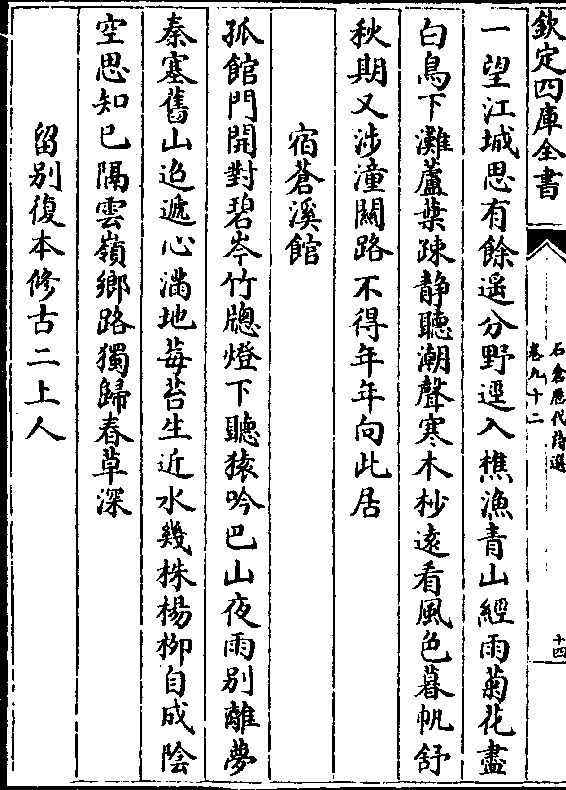 欽定四庫全書
石倉歷代詩選
卷九十二
十四
一望江城思有餘遥分野逕入樵漁青山經雨菊花盡
白鳥下灘蘆葉疎静聽潮聲寒木杪遠看風色暮帆舒
秋期又涉潼關路不得年年向此居
宿蒼溪館
孤館門開對碧岑竹牕燈下聽猿吟巴山夜雨别離夢
秦塞舊山迢遞心滿地莓苔生近水幾株楊柳自成陰
空思知已隔雲嶺鄉路獨歸春草深
留别復本修古二上人